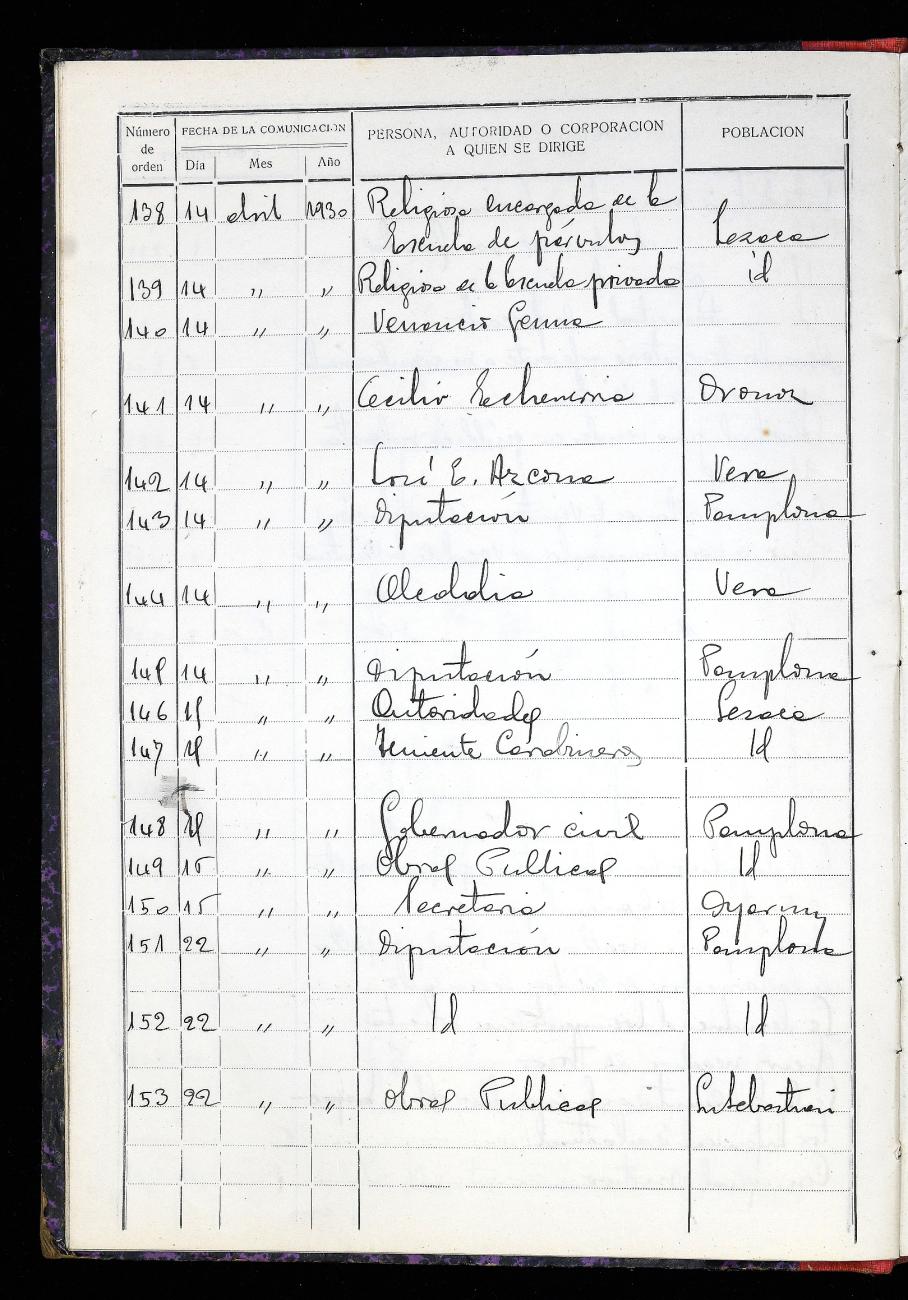 Número de orden FECHA DE LA COMUNICACION PERSONA, AUTORIDAD O CORPORACION A QUIEN SE DIRIGE POBLACION
Día Mes Año
138 14 abril 1930 Religiosa encargada de la
Escuela de párvulos Lesaca
139 14 " " Religiosa de la Escuela privada id
140 14 " " Venancio
141 14 " " Cecilio Echeverria Oronoz
142 14 " " José E. Arcona Vera
143 14 " " Diputación Pamplona
144 14 " " Alcaldia Vera
145 14 " " Diputación Pamplona
146 15 " " Autoridades Lesaca
147 15 " " Teniente Carabineros Id
148 15 " " Gobernador civil Pamplona
149 15 " " Obras Publicas Id
150 15 " " Secretaria Oyarzun
151 22 " " Diputación Pamplona
152 22 " " Id Id
153 22 " " Obras Publicas Sn Sebastian